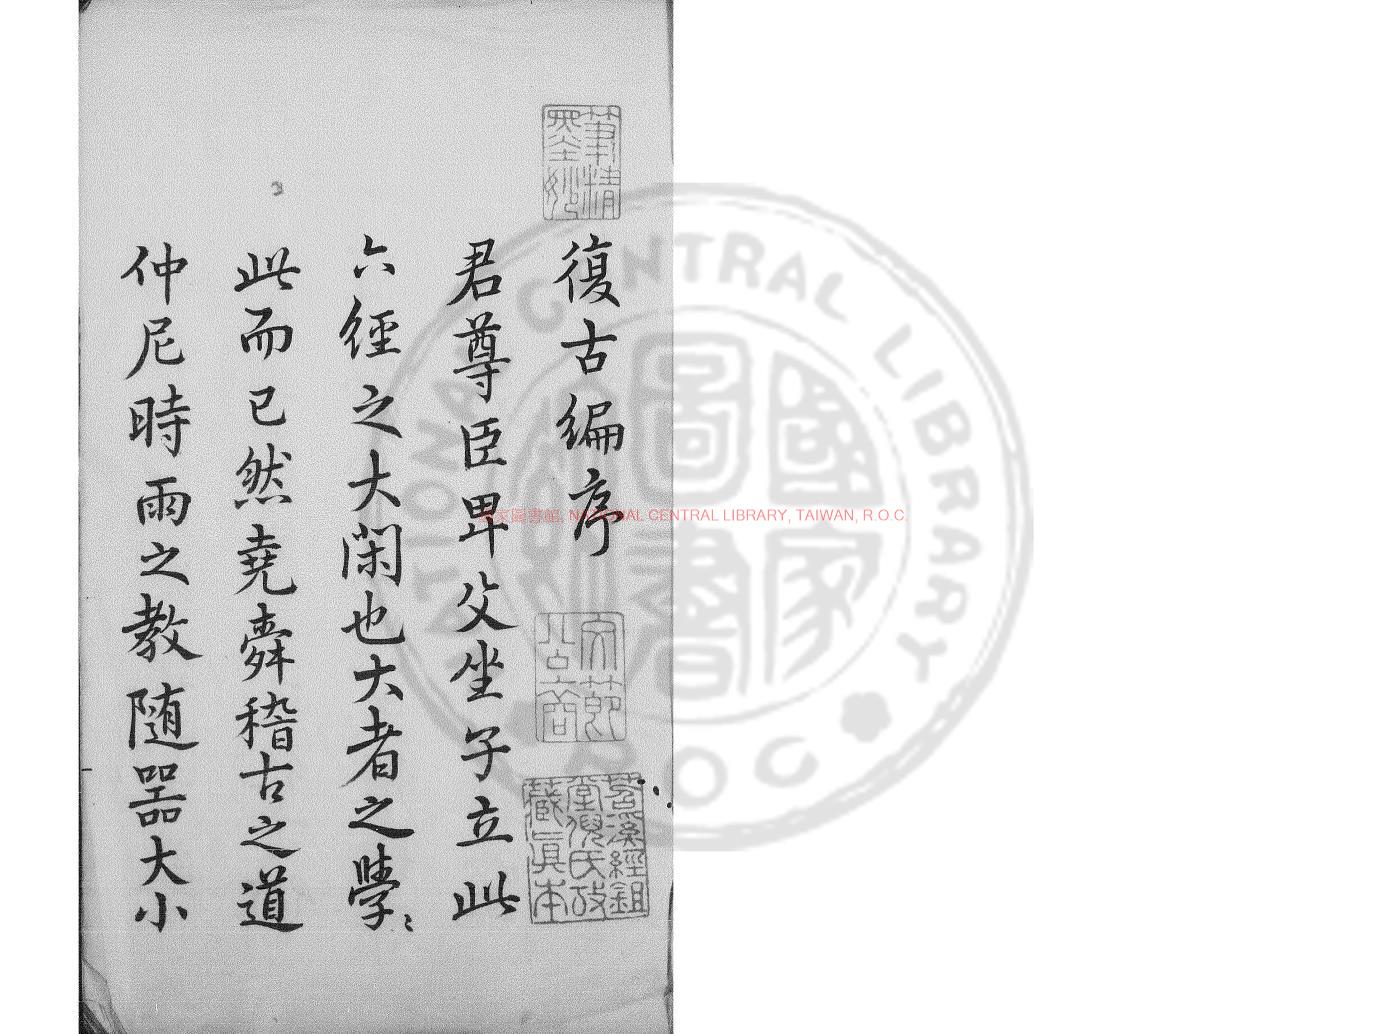 復古編序
君尊臣卑父坐子立此
六經之大閑也大者之學〻
此而已然堯舜稽古之道
仲尼時雨之教随器大小
筆精
墨妙
苕溪經鉏
堂倪氏攷
藏真本
國家圖書館, NATIONAL CENTRAL LIBRARY, TAIWAN, R.O.C.
NATIONAL CENTRAL LIBRARY
R O C